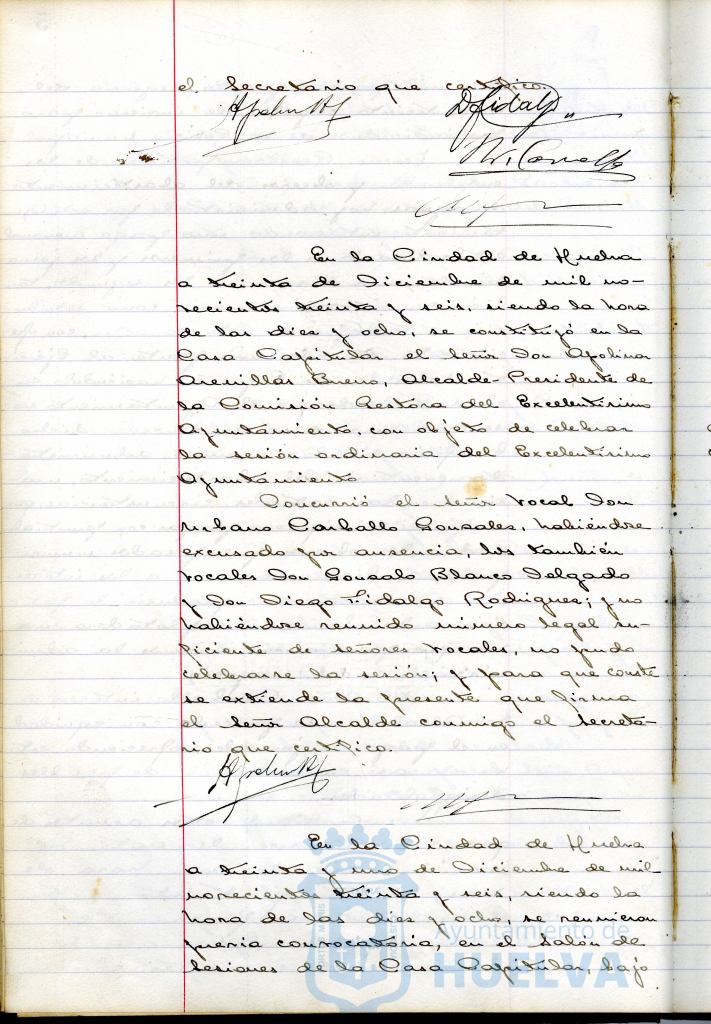 el Secretario que certifico.
D Fidalgo
En la Ciudad de Huelva
a treinta de Diciembre de mil no-
vecientos treinta y seis, siendo la hora
de las dies y ocho, se constituyó en la
Casa Capitular el señor Don Apolinar
Arenillas Bueno, Alcalde-Presidente de
la Comisión Gestora del Excelentísimo
Ayuntamiento, con objeto de celebrar
la sesión ordinaria del Excelentísimo
Ayuntamiento
Concurrió el señor Vocal Don
Urbano Carballo Gonsales, habiéndose
excusado por ausencia, los también
Vocales Don Gonsalo Blanco Delgado
y Don Diego Fidalgo Rodrigues; y no
habiéndose reunido número legal su-
ficiente de señores Vocales, no pudo
celebrarse la sesión; y para que conste
se extiende la presente que firma
el señor Alcalde conmigo el Secreta-
rio que certifico.
En la Ciudad de Huelva
a treinta y uno de Diciembre de mil
novecientos treinta y seis, siendo la
hora de las dies y ocho, se reunieron
previa convocatoria, en el Salón de
Sesiones de la Casa Capitular, bajo
Ayuntamiento de
HUELVA